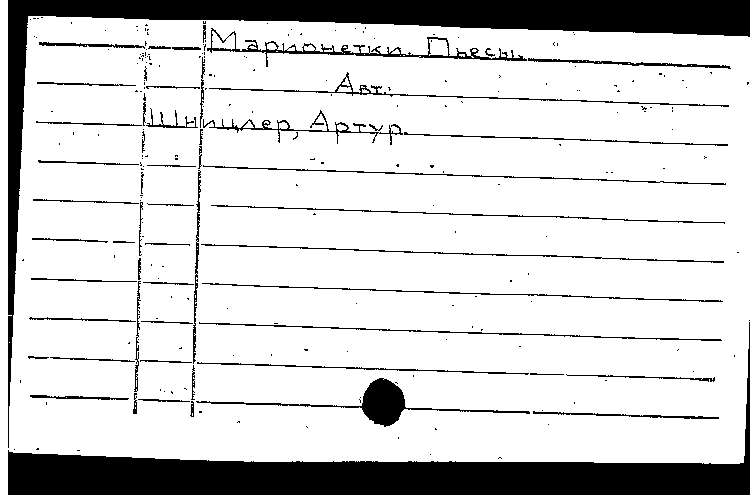 Марионетки. Пьесы.
Авт.:
Шницлер, Артур.